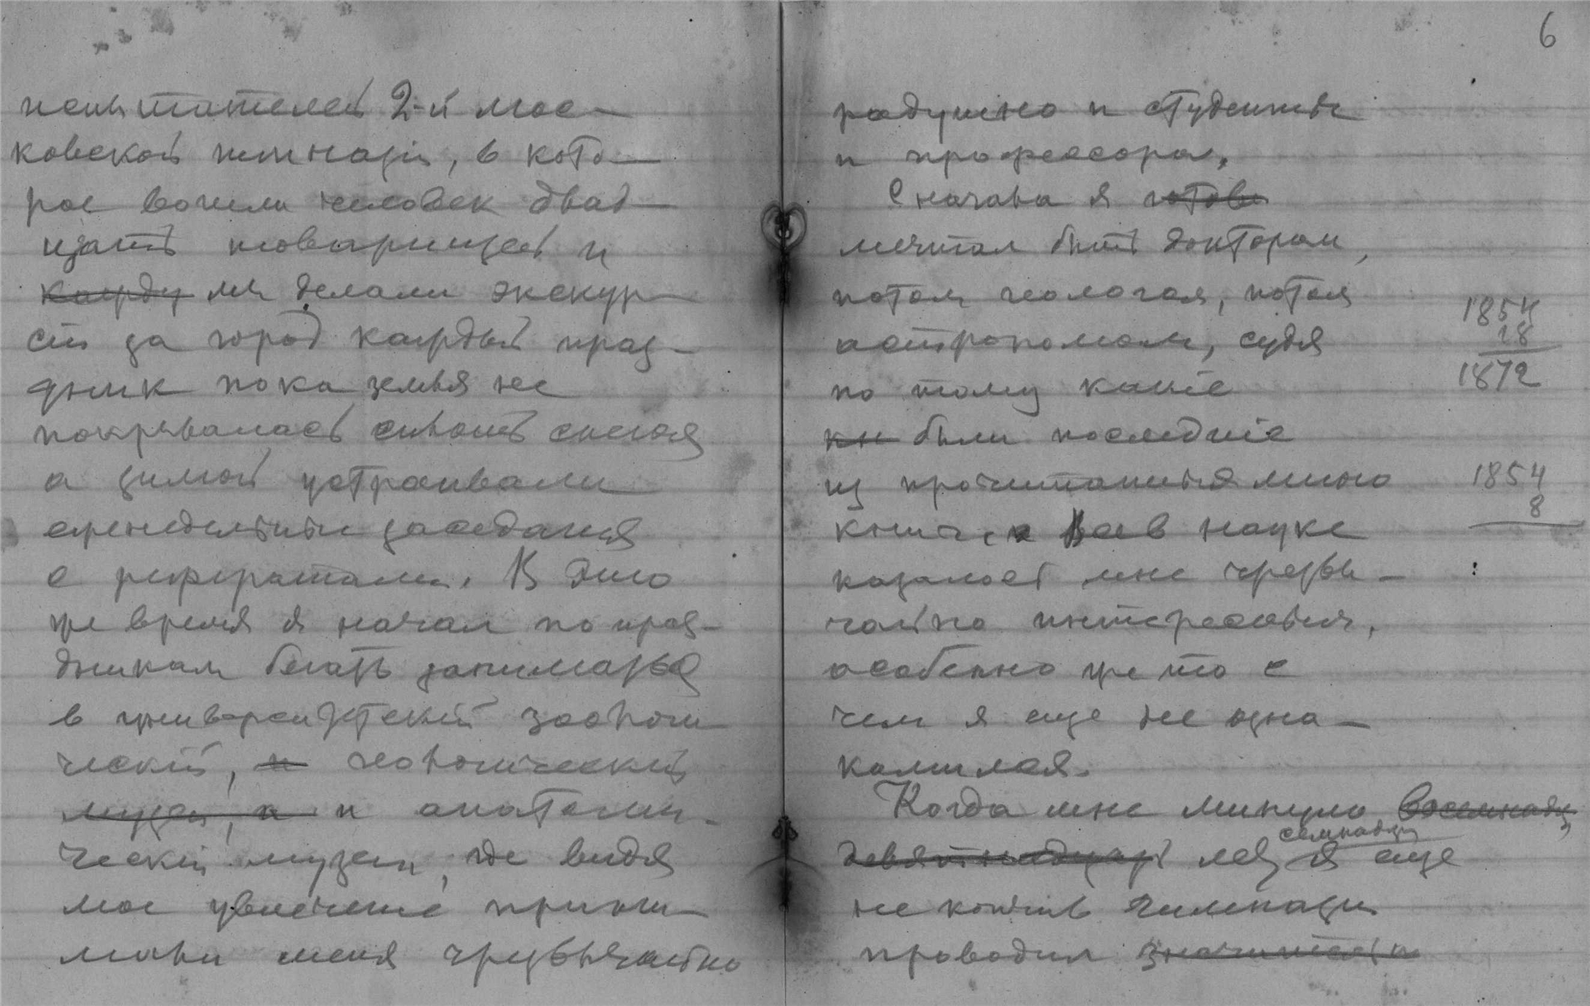 пыштателей 2-й мос-
ковской гимназіи, в кото-
рое вошли человек двад-
цать товарищей и
кажду мы делали экскур-
сіи за город каждый праз-
дник пока земля не
покрывалась снегом
а зимой устраивали
еженедельныя заседания
с рефератами. В это
же время я начал по праз-
дникам бегать заниматься
в университетскій зоологи-
ческій, и геологическій
музеи, и и анатоми-
ческій музеи, где видя
мое увлечение прини-
мали меня чрезвычайно
6
радушно и студенты
и профессора.
Сначала я готови
мечтал быть доктором,
потом геологом, потом
астрономом, судя
по тому какіе
кн были последніе
из прочитанных мною
книг. Все в науке
казалось мне чрезвы-
чайно интересным,
особенно же то с
чем я еще не озна-
комился.
Когда мне минуло восемнадц
семнадц
девятнадцать лет я еще
не кончив гимназіи
проводил значительн
1854
18
1872
1854
8